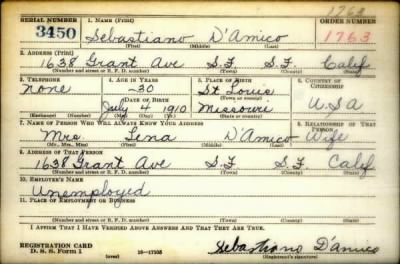 1763
SERIAL NUMBER 1. NAME (Print) ORDER NUMBER
3450 Sebastiano D'Amico 1763
(First) (Middle) (Last)
2. ADDRESS (Print)
1638 Grant Ave S.F. S.F. Calif
(Number and street or R. F. D. number) (Town) (County) (State)
3. TELEPHONE 4. AGE IN YEARS 5. PLACE OF BIRTH 6. COUNTRY OF CITIZENSHIP
None -30 St Louis
DATE OF BIRTH (Town or county)
July 4 1910 Missouri U.S.A
(Exchange) (Number) (Mo.) (Day) (Yr.) (State or country)
7. NAME OF PERSON WHO WILL ALWAYS KNOW YOUR ADDRESS 8. RELATIONSHIP OF THAT PERSON
Mrs Lena D'Amico Wife
(Mr., Mrs., Miss) (First) (Middle) (Last)
9. ADDRESS OF THAT PERSON
1638 Grant Ave S.F. S.F. Calif
(Number and street or R. F. D. number) (Town) (County) (State)
10. EMPLOYER'S NAME
Unemployed
11. PLACE OF EMPLOYMENT OR BUSINESS
(Number and street or R. F. D. number) (Town) (County) (State)
I AFFIRM THAT I HAVE VERIFIED ABOVE ANSWERS AND THAT THEY ARE TRUE.
REGISTRATION CARD
D. S. S. Form 1 16-17105 Sebastiano D'Amico
(Registrant's signature)